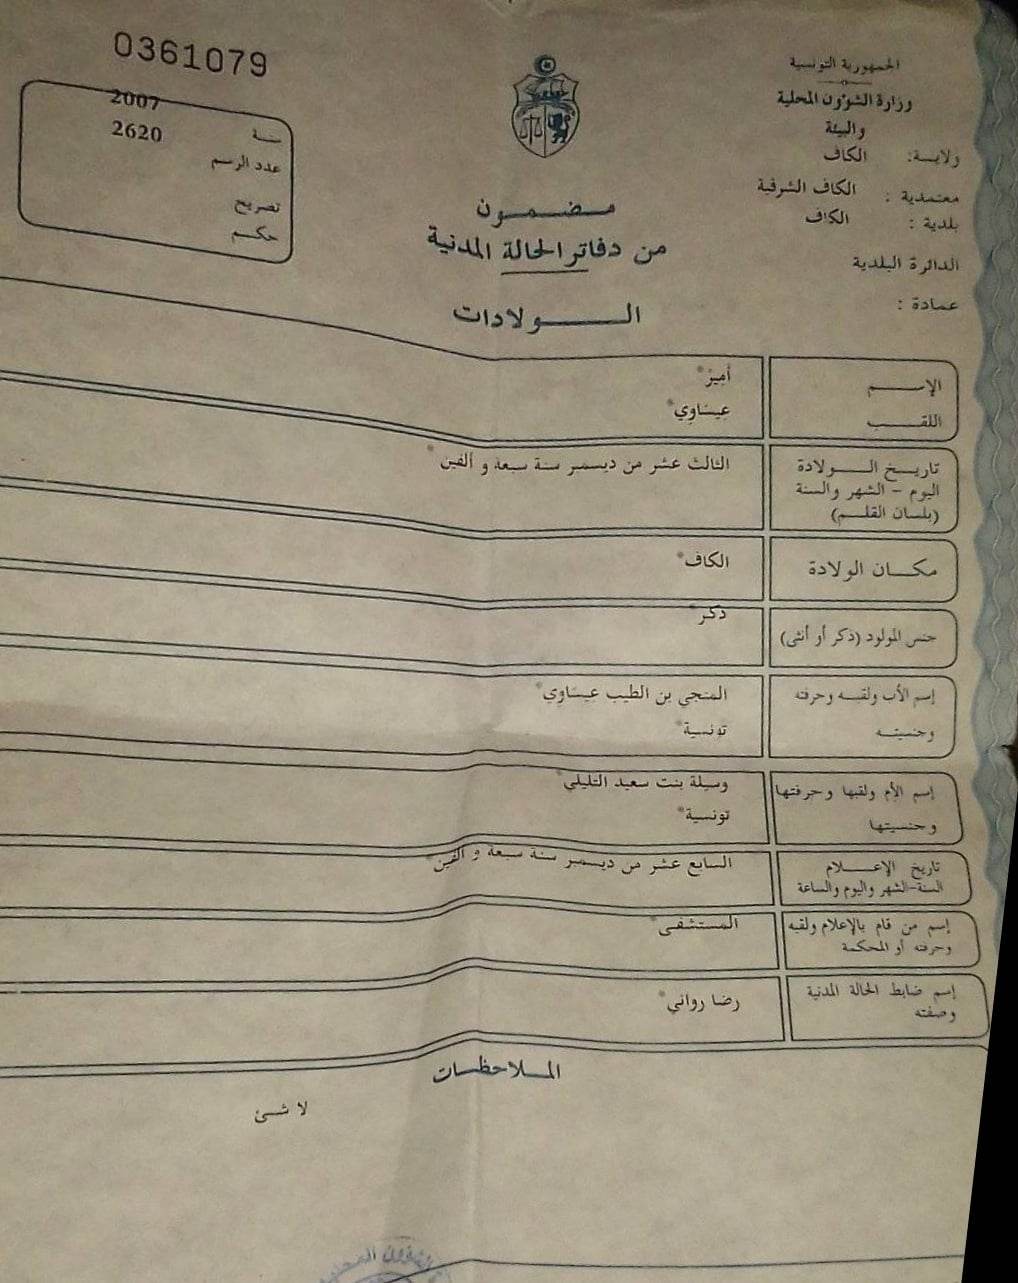 0361079
الجمهورية التونسية
وزارة الشؤون المحلية
والبيئة
ولاية: الكاف
معتمدية : الكاف الشرقية
بلدية : الكاف
الدائرة البلدية
عمادة :
سنة 2007
عدد الرسم 2620
تصريح
حكم
مضمون
من دفاتر الحالة المدنية
الولادات
الإسم أمير
اللقب عيساوي
تاريخ الولادة الثالث عشر من ديسمبر سنة سبعة و ألفين
اليوم - الشهر والسنة
(بلسان القلم)
مكان الولادة الكاف
جنس المولود (ذكر أو أنثى) ذكر
إسم الأب ولقبه وحرفته المنجي بن الطيب عيساوي
وجنسيته تونسية
إسم الأم ولقبها وحرفتها وسيلة بنت سعيد التليلي
وجنسيتها تونسية
تاريخ الإعلام السابع عشر من ديسمبر سنة سبعة و ألفين
السنة-الشهر واليوم والساعة
إسم من قام بالإعلام ولقبه المستشفى
وحرفته أو المحكمة
إسم ضابط الحالة المدنية رضا رواني
وصفته
الملاحظات
لا شئ